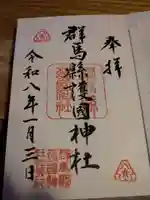 奉拝
群馬縣護國神社
令和八年一月三日